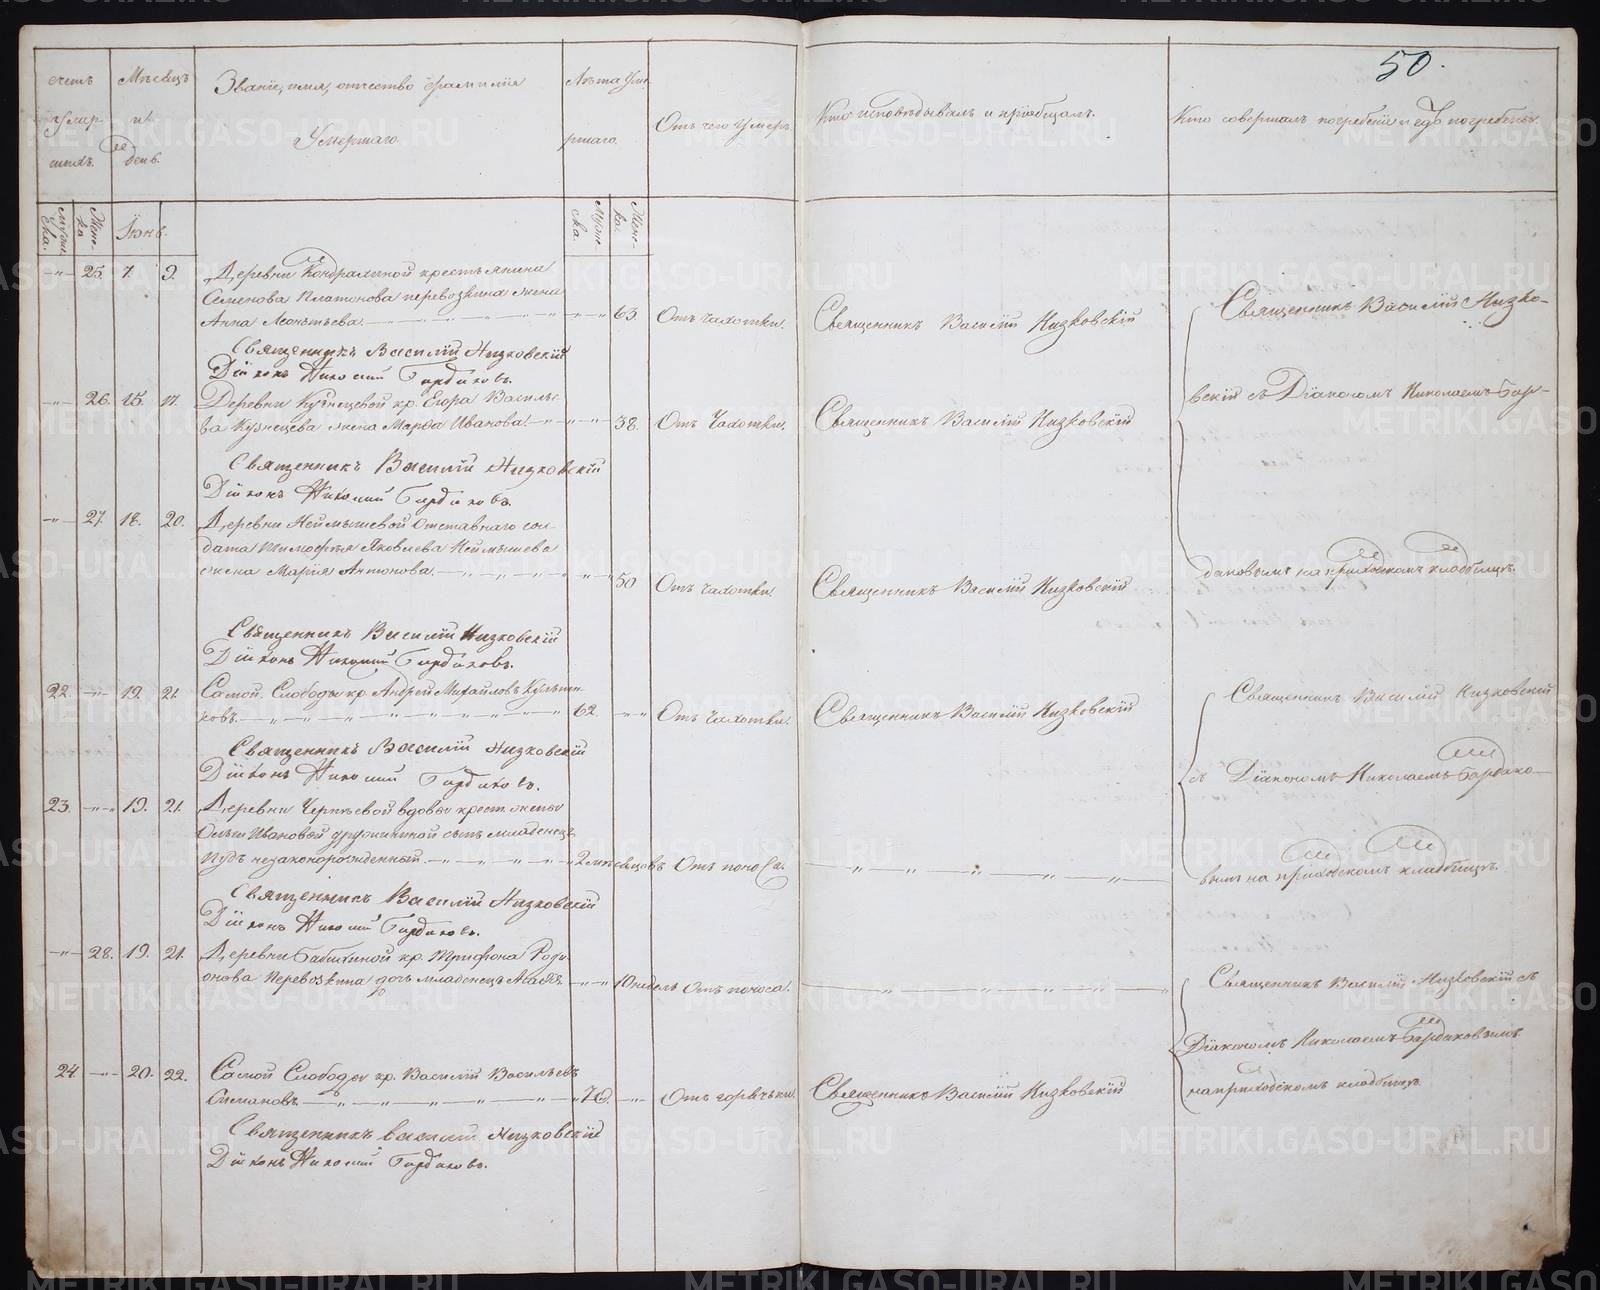 50.
счетъ умершихъ.
Мѣсяцъ и день.
Званіе, имя, отчество и фамилія Умершаго.
Лѣта умершаго.
Отъ чего умеръ.
Кто исповѣдывалъ и пріобщалъ.
Кто совершалъ погребеніе и гдѣ погребены.
Мужеска.
Женска.
Іюнь.
Мужеска.
Женска.
25. 7. 9. Деревни Кондрашиной крестьянина
Семенова Платонова перевозкина жена
Анна Леонтьева. 63. Отъ чахотки. Священникъ Василій Низковскій
Священникъ Василій Низковскій
Діяконъ Николай Бардаковъ.
26. 15. 17. Деревни Кузнецевой кр. Егора Василье-
ва Кузнецева жена Марѳа Иванова. 38. Отъ Чахотки. Священникъ Василій Низковскій
Священникъ Василій Низковскій
Діяконъ Николай Бардаковъ.
27. 18. 20. Деревни Неймышевой Отставнаго сол-
дата Тимофѣя Яковлева Неймышева
жена Марія Антонова. 50 Отъ чахотки. Священникъ Василій Низковскій
Священникъ Василій Низко-
вскій съ Діакономъ Николаемъ Бар-
даковымъ на приходскомъ кладбищѣ.
Священникъ Василій Низковскій
Діяконъ Николай Бардаковъ.
22. 19. 21. Самой Слободы кр. Андрей Михайловъ
ковъ. 62. Отъ Чахотки. Священникъ Василій Низковскій
Священникъ Василій Низковскій
Діяконъ Николай Бардаковъ.
23. 19. 21. Деревни вдовы крест. жены
Ивановой сынъ младенецъ
незаконорожденный. 2 мѣсяцовъ Отъ поноса.
Священникъ Василій Низковскій
съ Діакономъ Николаемъ Бардако-
вымъ на приходскомъ кладбищѣ.
Священникъ Василій Низковскій
Діяконъ Николай Бардаковъ.
28. 19. 21. Деревни Бабихиной кр. Трифона Роди-
онова Перевозкина дочь младенецъ 10 недель Отъ поноса.
24. 20. 22. Самой Слободы кр. Василій Васильевъ
Симановъ. 76. Отъ горячьки. Священникъ Василій Низковскій
Священникъ Василій Низковскій съ
Діакономъ Николаемъ Бардаковымъ
на приходскомъ кладбищѣ.
Священникъ Василій Низковскій
Діяконъ Николай Бардаковъ.
METRIKI.GASO-URAL.RU